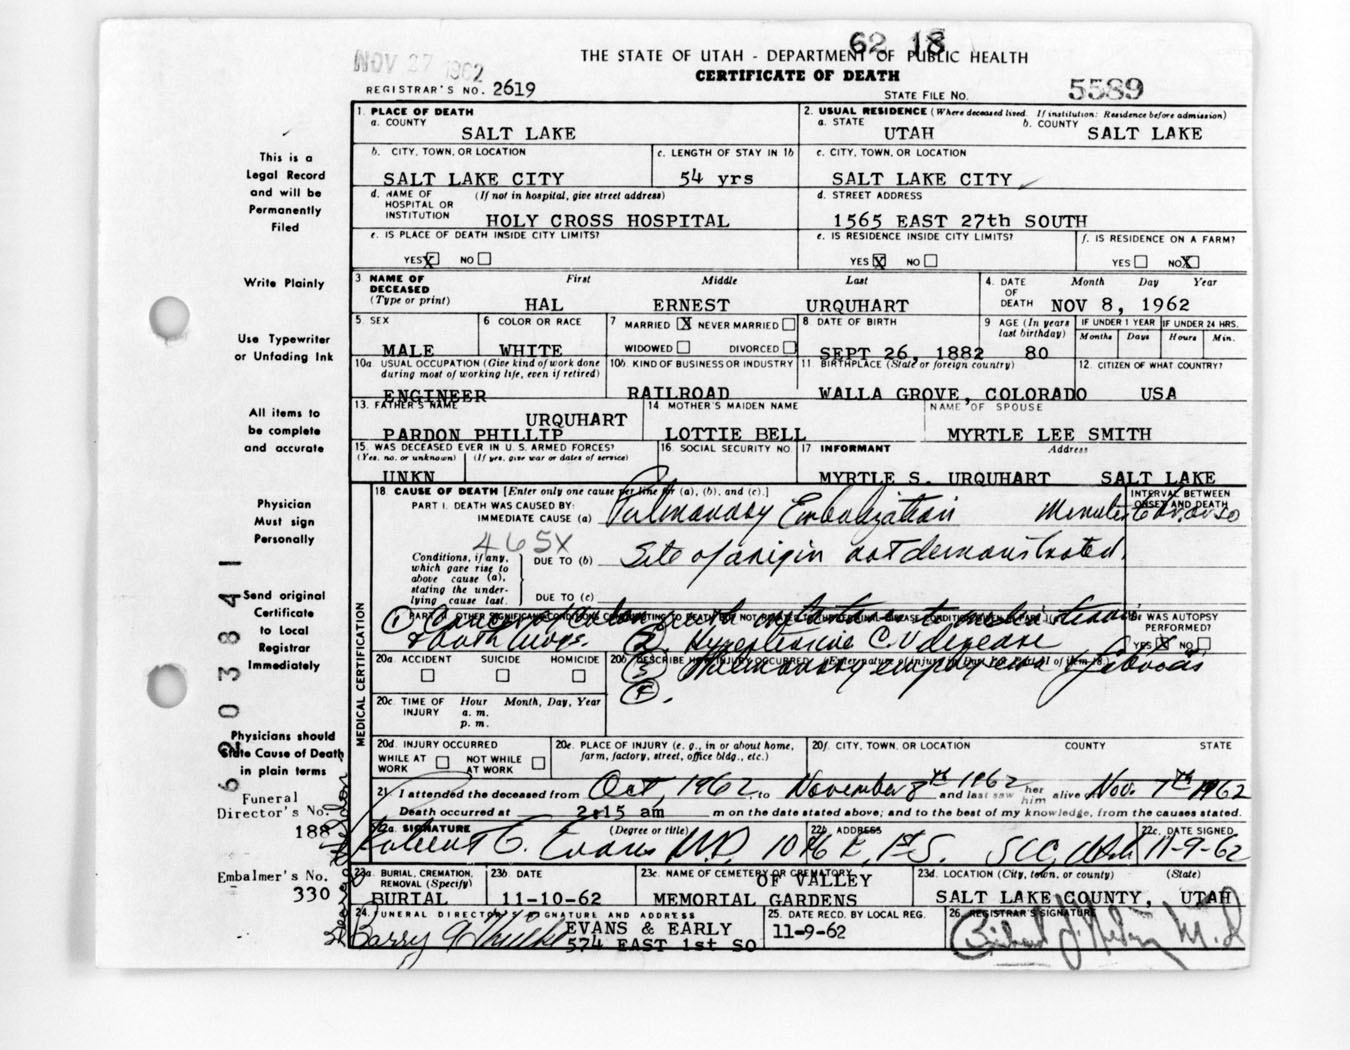 62 18
NOV 27 1962
THE STATE OF UTAH - DEPARTMENT OF PUBLIC HEALTH
CERTIFICATE OF DEATH
REGISTRAR'S NO. 2619
STATE FILE NO. 5589
This is a
Legal Record
and will be
Permanently
Filed
Write Plainly
Use Typewriter
or Unfading Ink
All items to
be complete
and accurate
Physician
Must sign
Personally
Send original
Certificate
to Local
Registrar
Immediately
Physicians should
State Cause of Death
in plain terms
Funeral
Director's No.
188
Embalmer's No.
330
6 2 0 3 8 4 1
1. PLACE OF DEATH
a. COUNTY SALT LAKE
2. USUAL RESIDENCE (Where deceased lived. If institution: Residence before admission)
a. STATE UTAH b. COUNTY SALT LAKE
b. CITY, TOWN, OR LOCATION SALT LAKE CITY
c. LENGTH OF STAY IN 1b 54 yrs
c. CITY, TOWN, OR LOCATION SALT LAKE CITY
d. NAME OF HOSPITAL OR INSTITUTION (If not in hospital, give street address) HOLY CROSS HOSPITAL
d. STREET ADDRESS 1565 EAST 27th SOUTH
e. IS PLACE OF DEATH INSIDE CITY LIMITS?
YES X NO
e. IS RESIDENCE INSIDE CITY LIMITS?
YES X NO
f. IS RESIDENCE ON A FARM?
YES NO X
3 NAME OF DECEASED (Type or print) First Middle Last
HAL ERNEST URQUHART
4. DATE OF DEATH Month Day Year
NOV 8, 1962
5. SEX MALE
6 COLOR OR RACE WHITE
7 MARRIED X NEVER MARRIED
WIDOWED DIVORCED
8 DATE OF BIRTH SEPT 26, 1882
9 AGE (In years last birthday) 80
IF UNDER 1 YEAR Months Days
IF UNDER 24 HRS. Hours Min.
10a USUAL OCCUPATION (Give kind of work done during most of working life, even if retired) ENGINEER
10b. KIND OF BUSINESS OR INDUSTRY RAILROAD
11 BIRTHPLACE (State or foreign country) WALLA GROVE, COLORADO
12. CITIZEN OF WHAT COUNTRY? USA
13. FATHER'S NAME PARDON PHILLIP URQUHART
14 MOTHER'S MAIDEN NAME LOTTIE BELL
NAME OF SPOUSE MYRTLE LEE SMITH
15. WAS DECEASED EVER IN U. S. ARMED FORCES?
(Yes, no. or unknown) (If yes, give war or dates of service)
UNKN
16. SOCIAL SECURITY NO.
17 INFORMANT Address
MYRTLE S. URQUHART SALT LAKE
MEDICAL CERTIFICATION
18. CAUSE OF DEATH [Enter only one cause per line for (a), (b), and (c).]
INTERVAL BETWEEN ONSET AND DEATH
PART I. DEATH WAS CAUSED BY:
IMMEDIATE CAUSE (a) Pulmonary Embolization Minutes
465X
Conditions, if any, which gave rise to above cause (a), stating the underlying cause last.
DUE TO (b) Site of origin not demonstrated.
DUE TO (c)
PART II. OTHER SIGNIFICANT CONDITIONS CONTRIBUTING TO DEATH BUT NOT RELATED TO THE TERMINAL DISEASE CONDITION GIVEN IN PART I(a)
1
& both lungs. 2. Hypertensive C.V. disease
3 Pulmonary emphysema & fibrosis
4.
19. WAS AUTOPSY PERFORMED?
YES X NO
20a ACCIDENT SUICIDE HOMICIDE
20b DESCRIBE HOW INJURY OCCURRED. (Enter nature of injury in Part I or Part II of item 18.)
20c. TIME OF INJURY Hour a. m. p. m. Month, Day, Year
20d. INJURY OCCURRED
WHILE AT WORK NOT WHILE AT WORK
20e. PLACE OF INJURY (e. g., in or about home, farm, factory, street, office bldg., etc.)
20f. CITY, TOWN, OR LOCATION COUNTY STATE
21 I attended the deceased from Oct, 1962, to November 8th 1962 and last saw her him alive Nov. 7th 1962
Death occurred at 2:15 am m on the date stated above; and to the best of my knowledge, from the causes stated.
22a. SIGNATURE (Degree or title) Robert C. Evans M.D.
22b. ADDRESS E. 1st S. SLC, Utah
22c. DATE SIGNED 11-9-62
23a. BURIAL, CREMATION, REMOVAL (Specify) BURIAL
23b. DATE 11-10-62
23c. NAME OF CEMETERY OR CREMATORY
OF VALLEY
MEMORIAL GARDENS
23d. LOCATION (City, town, or county) (State)
SALT LAKE COUNTY, UTAH
24. FUNERAL DIRECTOR'S SIGNATURE AND ADDRESS
Barry
EVANS & EARLY
574 EAST 1st SO
25. DATE RECD. BY LOCAL REG.
11-9-62
26. REGISTRAR'S SIGNATURE